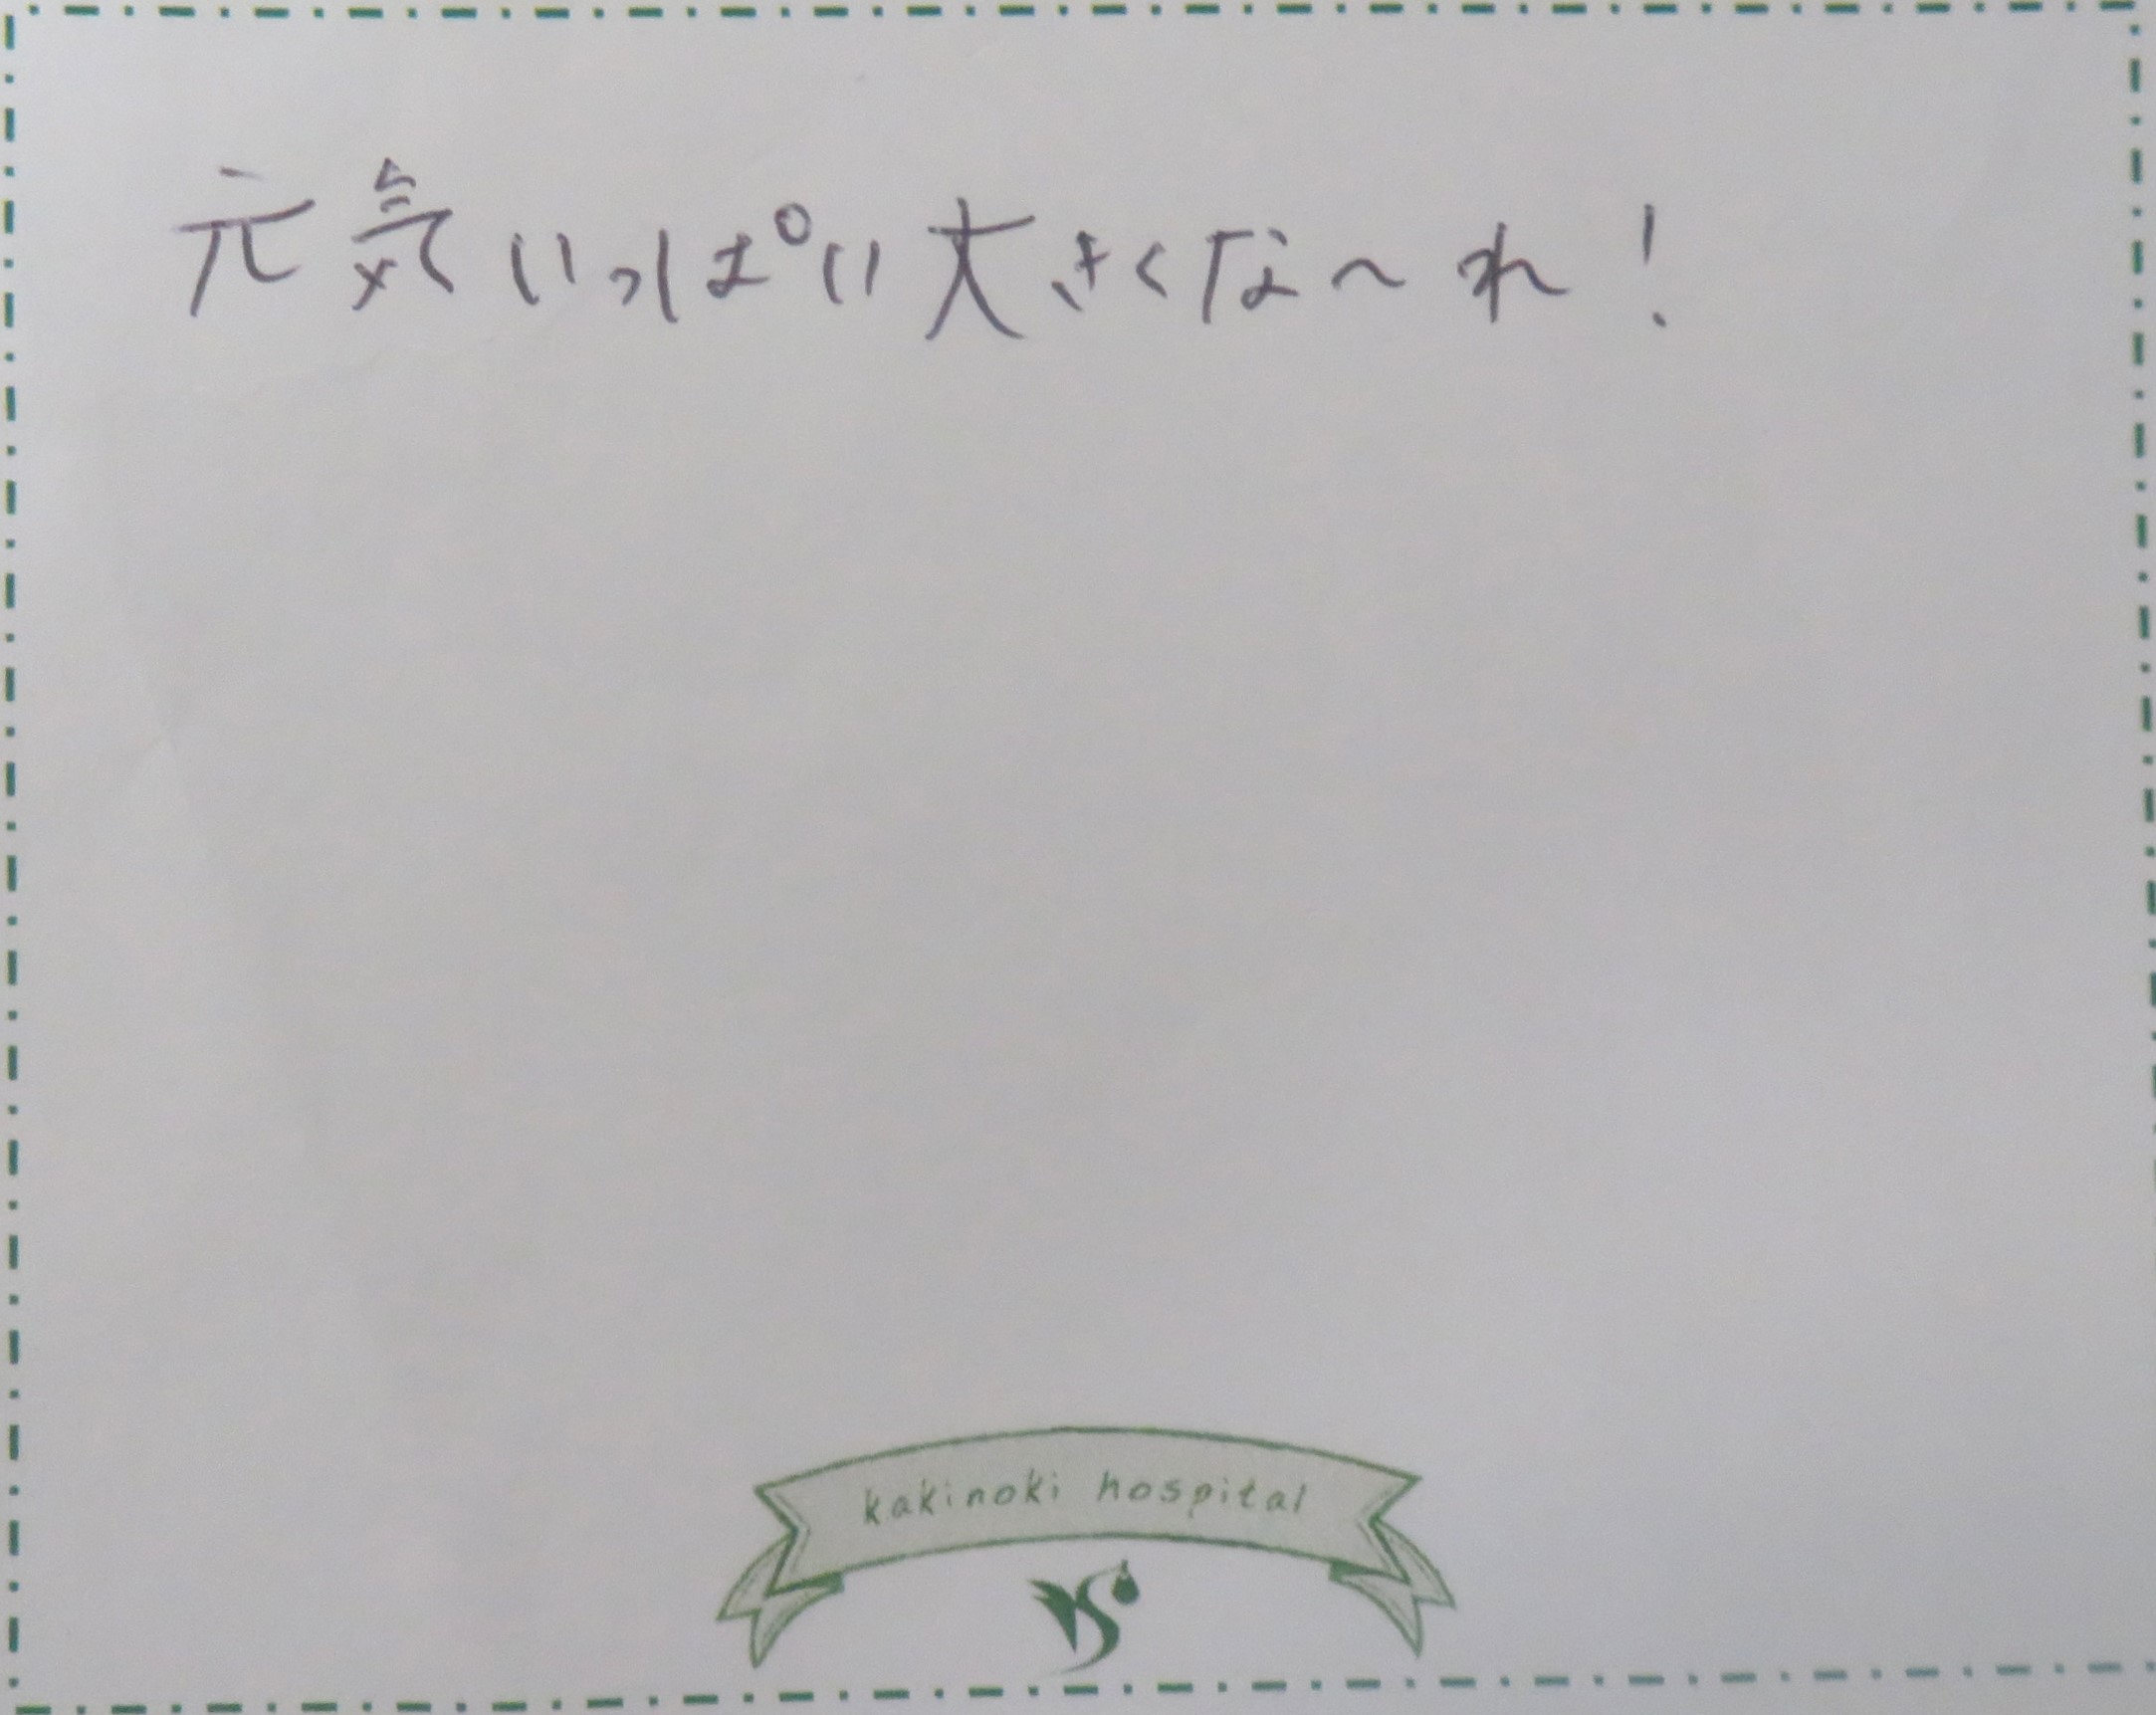 元気いっぱい大きくな〜れ!
kakinoki hospital